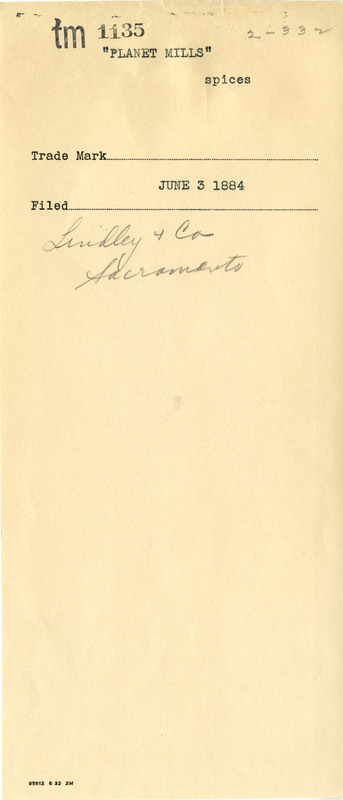 tm 1135 2-332
"PLANET MILLS"
spices
Trade Mark
JUNE 3 1884
Filed
Lindley + Co
Sacramento
95612 6 32 2M